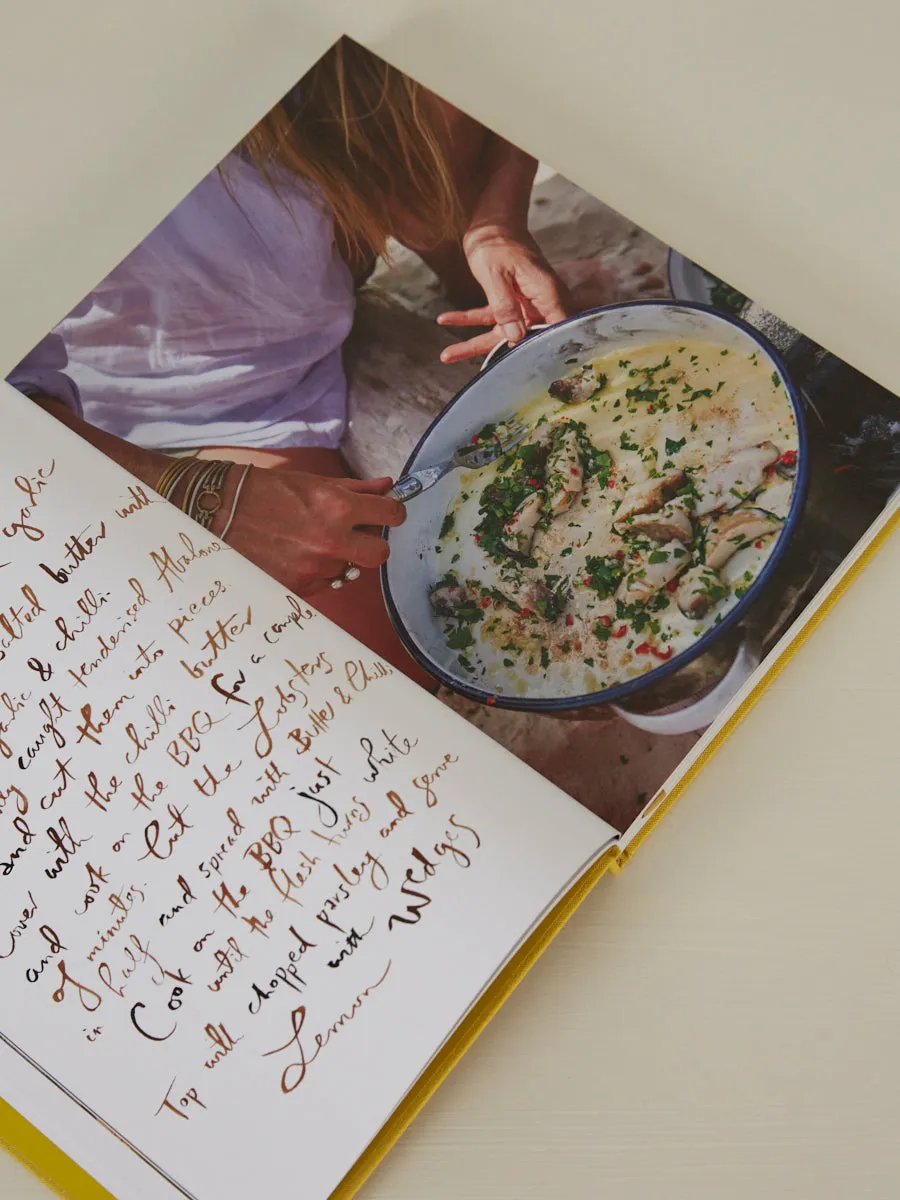 garlic
salted butter with
garlic & chilli.
caught tenderised Abalone
and cut them into pieces
Cover with the chilli butter
and cook on the BBQ for a couple
of minutes. Cut the Lobsters
in half and spread with Butter & Chilli
Cook on the BBQ just
until the flesh turns white
Top with chopped parsley and serve
with Wedges
Lemon